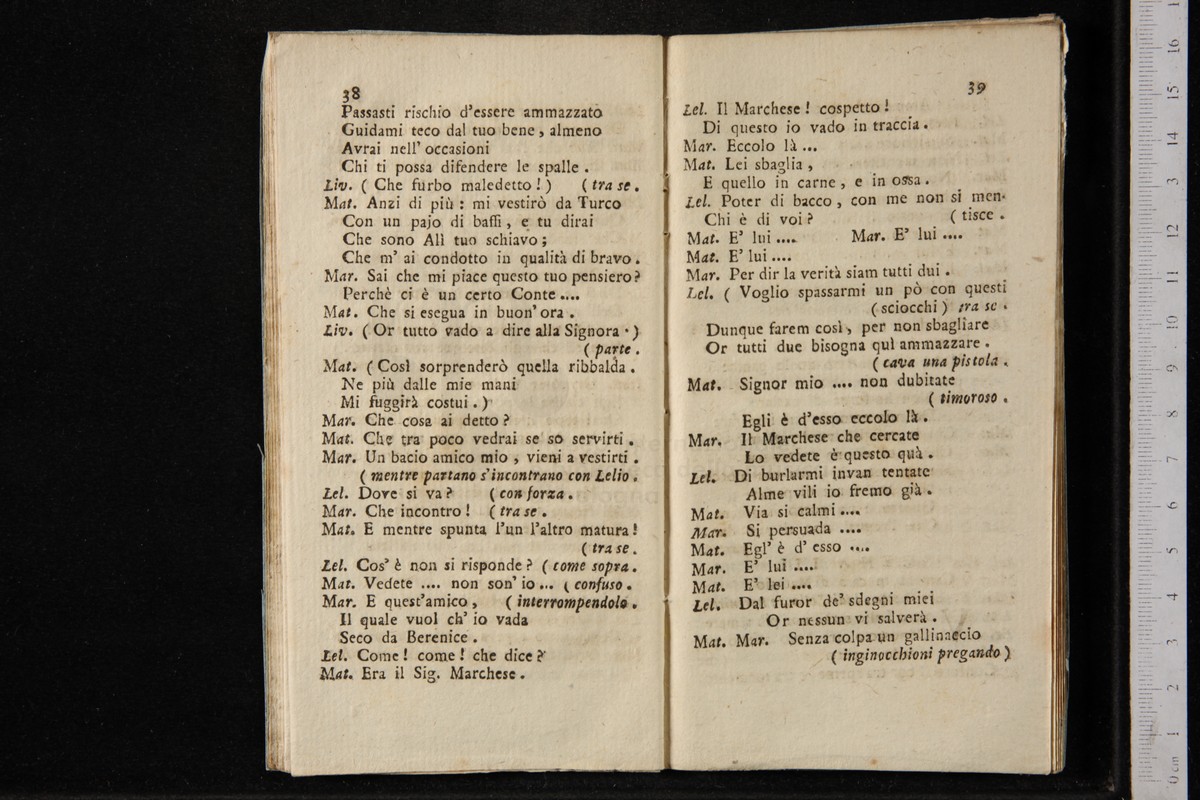 38
Passasti rischio d'essere ammazzato
Guidami teco dal tuo bene, almeno
Avrai nell' occasioni
Chi ti possa difendere le spalle.
Liv. ( Che furbo maledetto! ) ( tra se.
Mat. Anzi di più: mi vestirò da Turco
Con un pajo di baffi, e tu dirai
Che sono Alì tuo schiavo;
Che m' ai condotto in qualità di bravo.
Mar. Sai che mi piace questo tuo pensiero?
Perchè ci è un certo Conte....
Mat. Che si esegua in buon' ora.
Liv. ( Or tutto vado a dire alla Signora. )
( parte.
Mat. ( Così sorprenderò quella ribbalda.
Ne più dalle mie mani
Mi fuggirà costui. )
Mar. Che cosa ai detto?
Mat. Che tra poco vedrai se so servirti.
Mar. Un bacio amico mio, vieni a vestirti.
( mentre partano s'incontrano con Lelio.
Lel. Dove si va? ( con forza.
Mar. Che incontro! ( tra se.
Mat. E mentre spunta l'un l'altro matura!
( tra se.
Lel. Cos' è non si risponde? ( come sopra.
Mat. Vedete .... non son' io ... ( confuso.
Mar. E quest'amico, ( interrompendolo.
Il quale vuol ch' io vada
Seco da Berenice.
Lel. Come! come! che dice?
Mat. Era il Sig. Marchese.
39
Lel. Il Marchese! cospetto!
Di questo io vado in traccia.
Mar. Eccolo là ...
Mat. Lei sbaglia,
E quello in carne, e in ossa.
Lel. Poter di bacco, con me non si men-
Chi è di voi? ( tisce.
Mat. E' lui .... Mar. E' lui ....
Mat. E' lui ....
Mar. Per dir la verità siam tutti dui.
Lel. ( Voglio spassarmi un pò con questi
( sciocchi ) tra se.
Dunque farem così, per non sbagliare
Or tutti due bisogna quì ammazzare.
( cava una pistola.
Mat. Signor mio .... non dubitate
( timoroso.
Egli è d'esso eccolo là.
Mar. Il Marchese che cercate
Lo vedete è questo quà.
Lel. Di burlarmi invan tentate
Alme vili io fremo già.
Mat. Via si calmi ....
Mar. Si persuada ....
Mat. Egl' è d' esso ....
Mar. E' lui ....
Mat. E' lei ....
Lel. Dal furor de' sdegni miei
Or nessun vi salverà.
Mat. Mar. Senza colpa un gallinaccio
( inginocchioni pregando )
0 cm 1 2 3 4 5 6 7 8 9 10 11 12 13 14 15 16